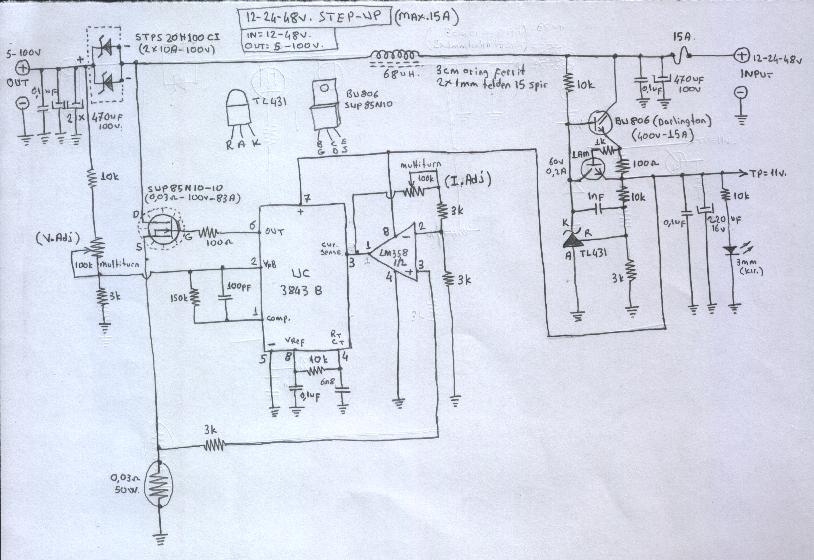 12-24-48v. STEP-UP (MAX.15A)
IN=12-48v.
OUT=5-100v.
STPS 20H100CI
(2x10A-100v)
5-100v
OUT
+
0,1uF
2x
470uF
100v.
68uH.
3cm oring ferit
2x1mm telden 15 spir
TL431
R A K
BU806
SUP85N10
B C E
G D S
15A
12-24-48v
INPUT
10k
0,1uF
470uF
100v
BU806 (Darlington)
(400v-15A)
1k
1Am
60v
0,2A
100Ω
TP=11v.
1nF
10k
K
R
A
TL431
3k
0,1uF
220uF
16v
10k
3mm
(kır.)
10k
SUP85N10-10
(0,03Ω-100v-83A)
D
G
S
100Ω
(V.Adj)
100k
multiturn
3k
150k
100pF
7
+
6
OUT
2
VFB
1
comp.
UC
3843 B
cur.
sense
3
VRef
RT
CT
5
8
4
10k
0,1uF
6n8
multiturn
100k
(I.Adj)
3k
8
2
1
LM358
1/2
3
4
3k
3k
0,03Ω
50W.